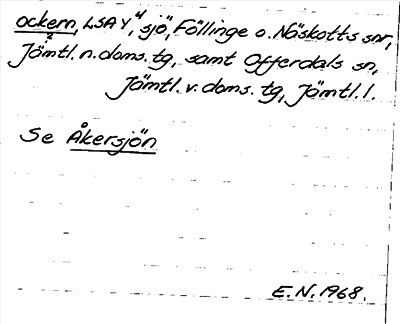 ockern, LSA Y, "sjö", Föllinge o. Näskotts snr,
Jämtl. n. doms. tg, samt Offerdals sn,
Jämtl. v. doms. tg, Jämtl. l.
Se Åkersjön
E.N. 1968.